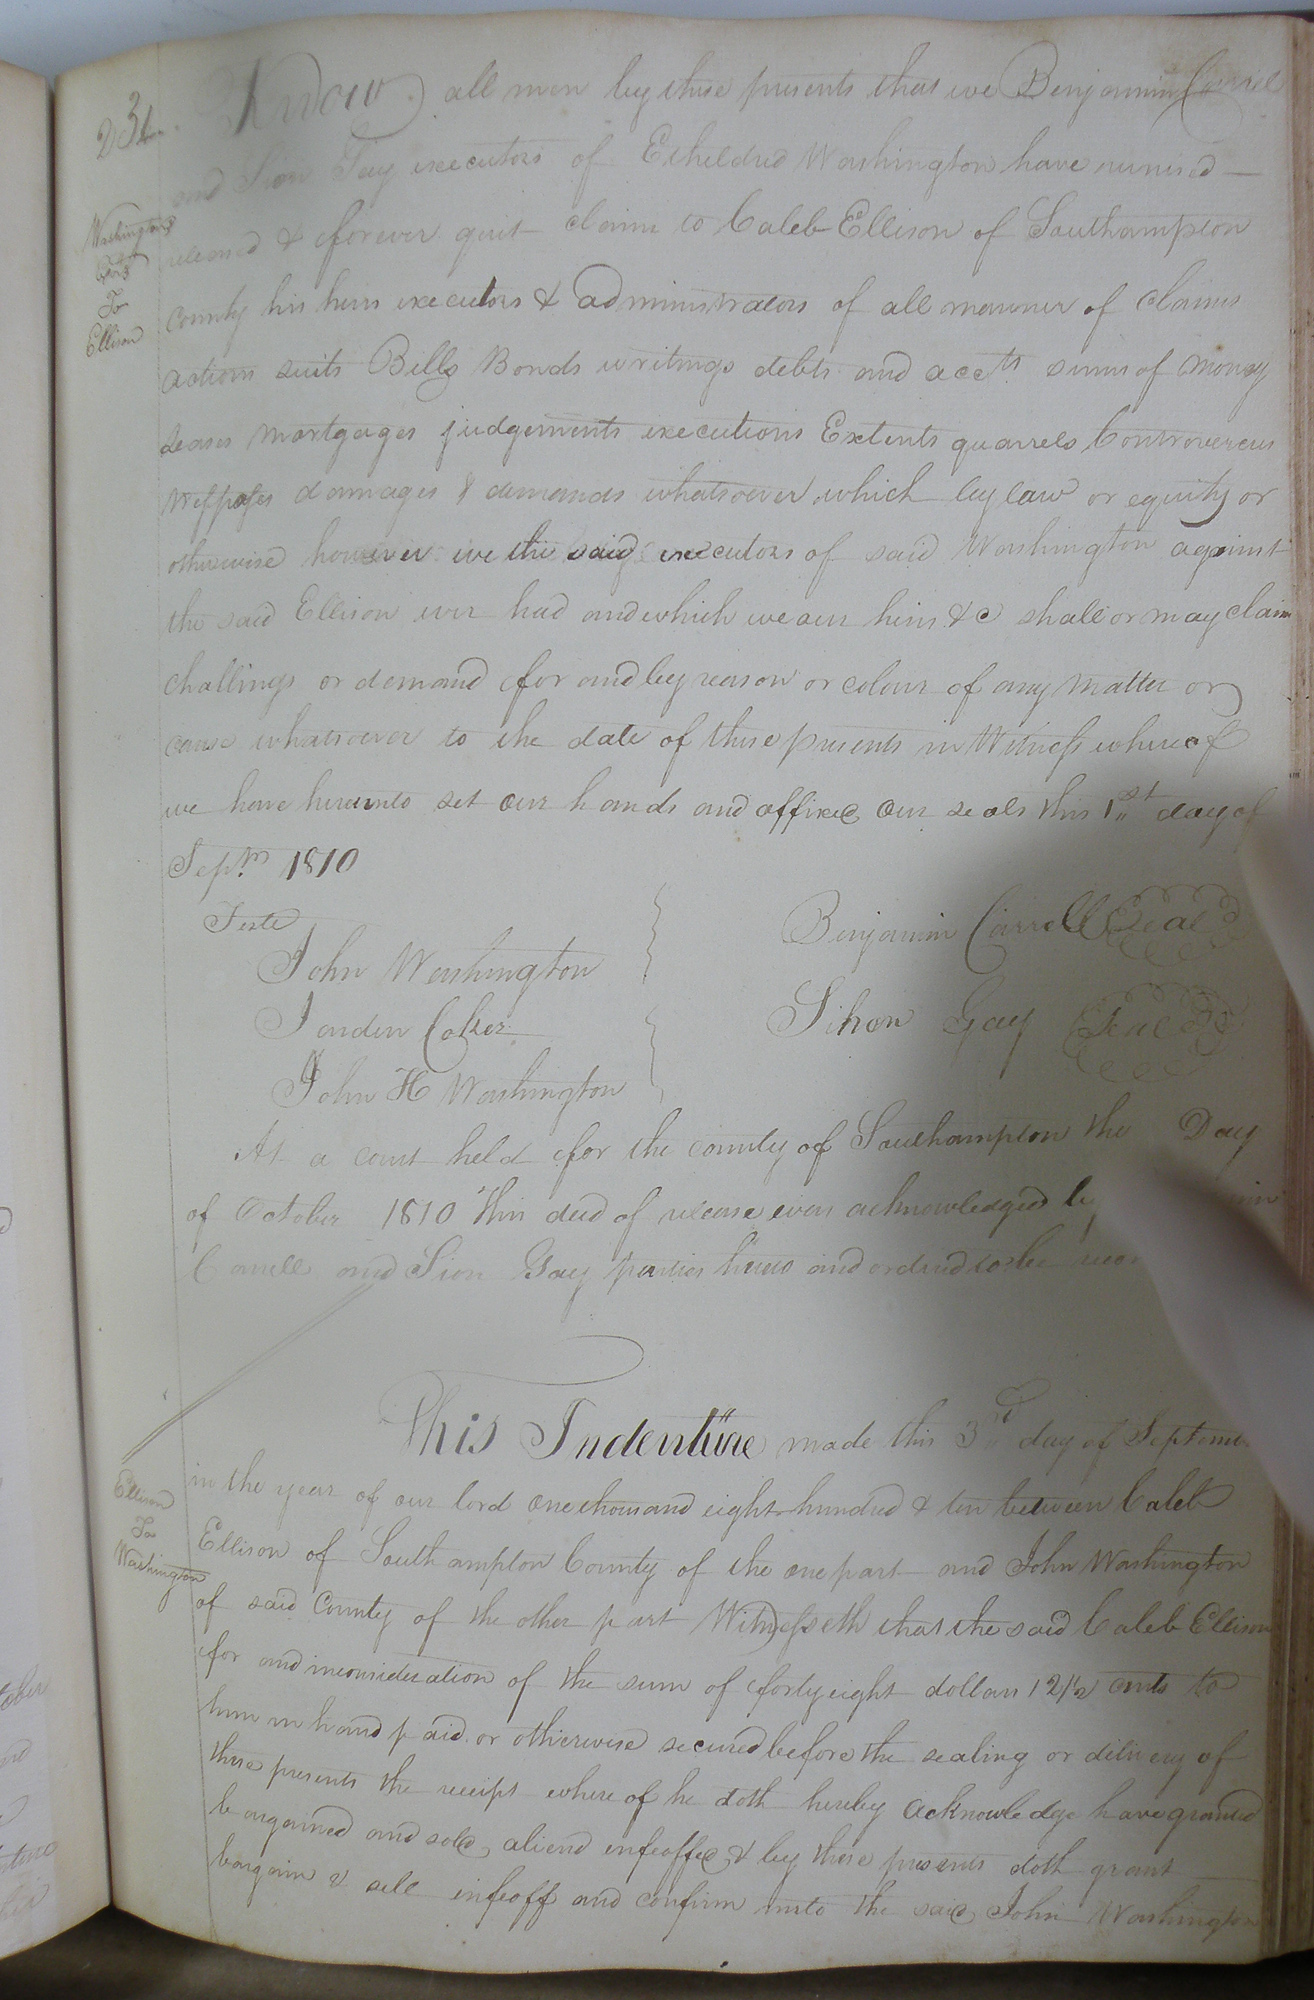 231
Know all men by these presents that we Benjamin Carrel
and Sion Gay executors of Etheldred Washington have remised
released & forever quit claim to Caleb Ellison of Southampton
County his heirs executors & administrators of all manner of claims
actions suits Bills Bonds writings debts and accts sums of money
Leases mortgages judgements executions Extents quarrels Controverceis
damages & demands whatsoever which by law or equity or
otherwise however we the said executors of said Washington against
the said Ellison ever had and which we our heirs &c shall or may claim
challings or demand for and by reason or colour of any matter or
cause whatsoever to the date of these presents in Witness whereof
we have hereunto set our hands and affixed our seals this 1st day of
Septm 1810
Washingtons
Exors
To
Ellison
Teste
John Washington
Jorden Coker
John H Washington
Benjamin Carrell Seal
Sihon Gay Seal
At a court held for the county of Southampton the Day
of October 1810 this deed of release was acknowledged
Carrell and Sion Gay parties hereto and orderd to be
This Indenture made this 3rd day of
in the year of our lord one thousand eight hundred & ten between Caleb
Ellison of Southampton County of the one part and John Washington
of said County of the other part Witnesseth that the said Caleb Ellison
for and inconsideration of the sum of forty eight dollars 12½ cents to
him in hand paid or otherwise secured before the sealing or delivery of
these presents the receipt where of he doth hereby acknowledge have granted
bargained and sold, aliend enfeoffed & by these presents doth grant
bargain & sell infeoff and confirm unto the said John Washington
Ellison
To
Washington